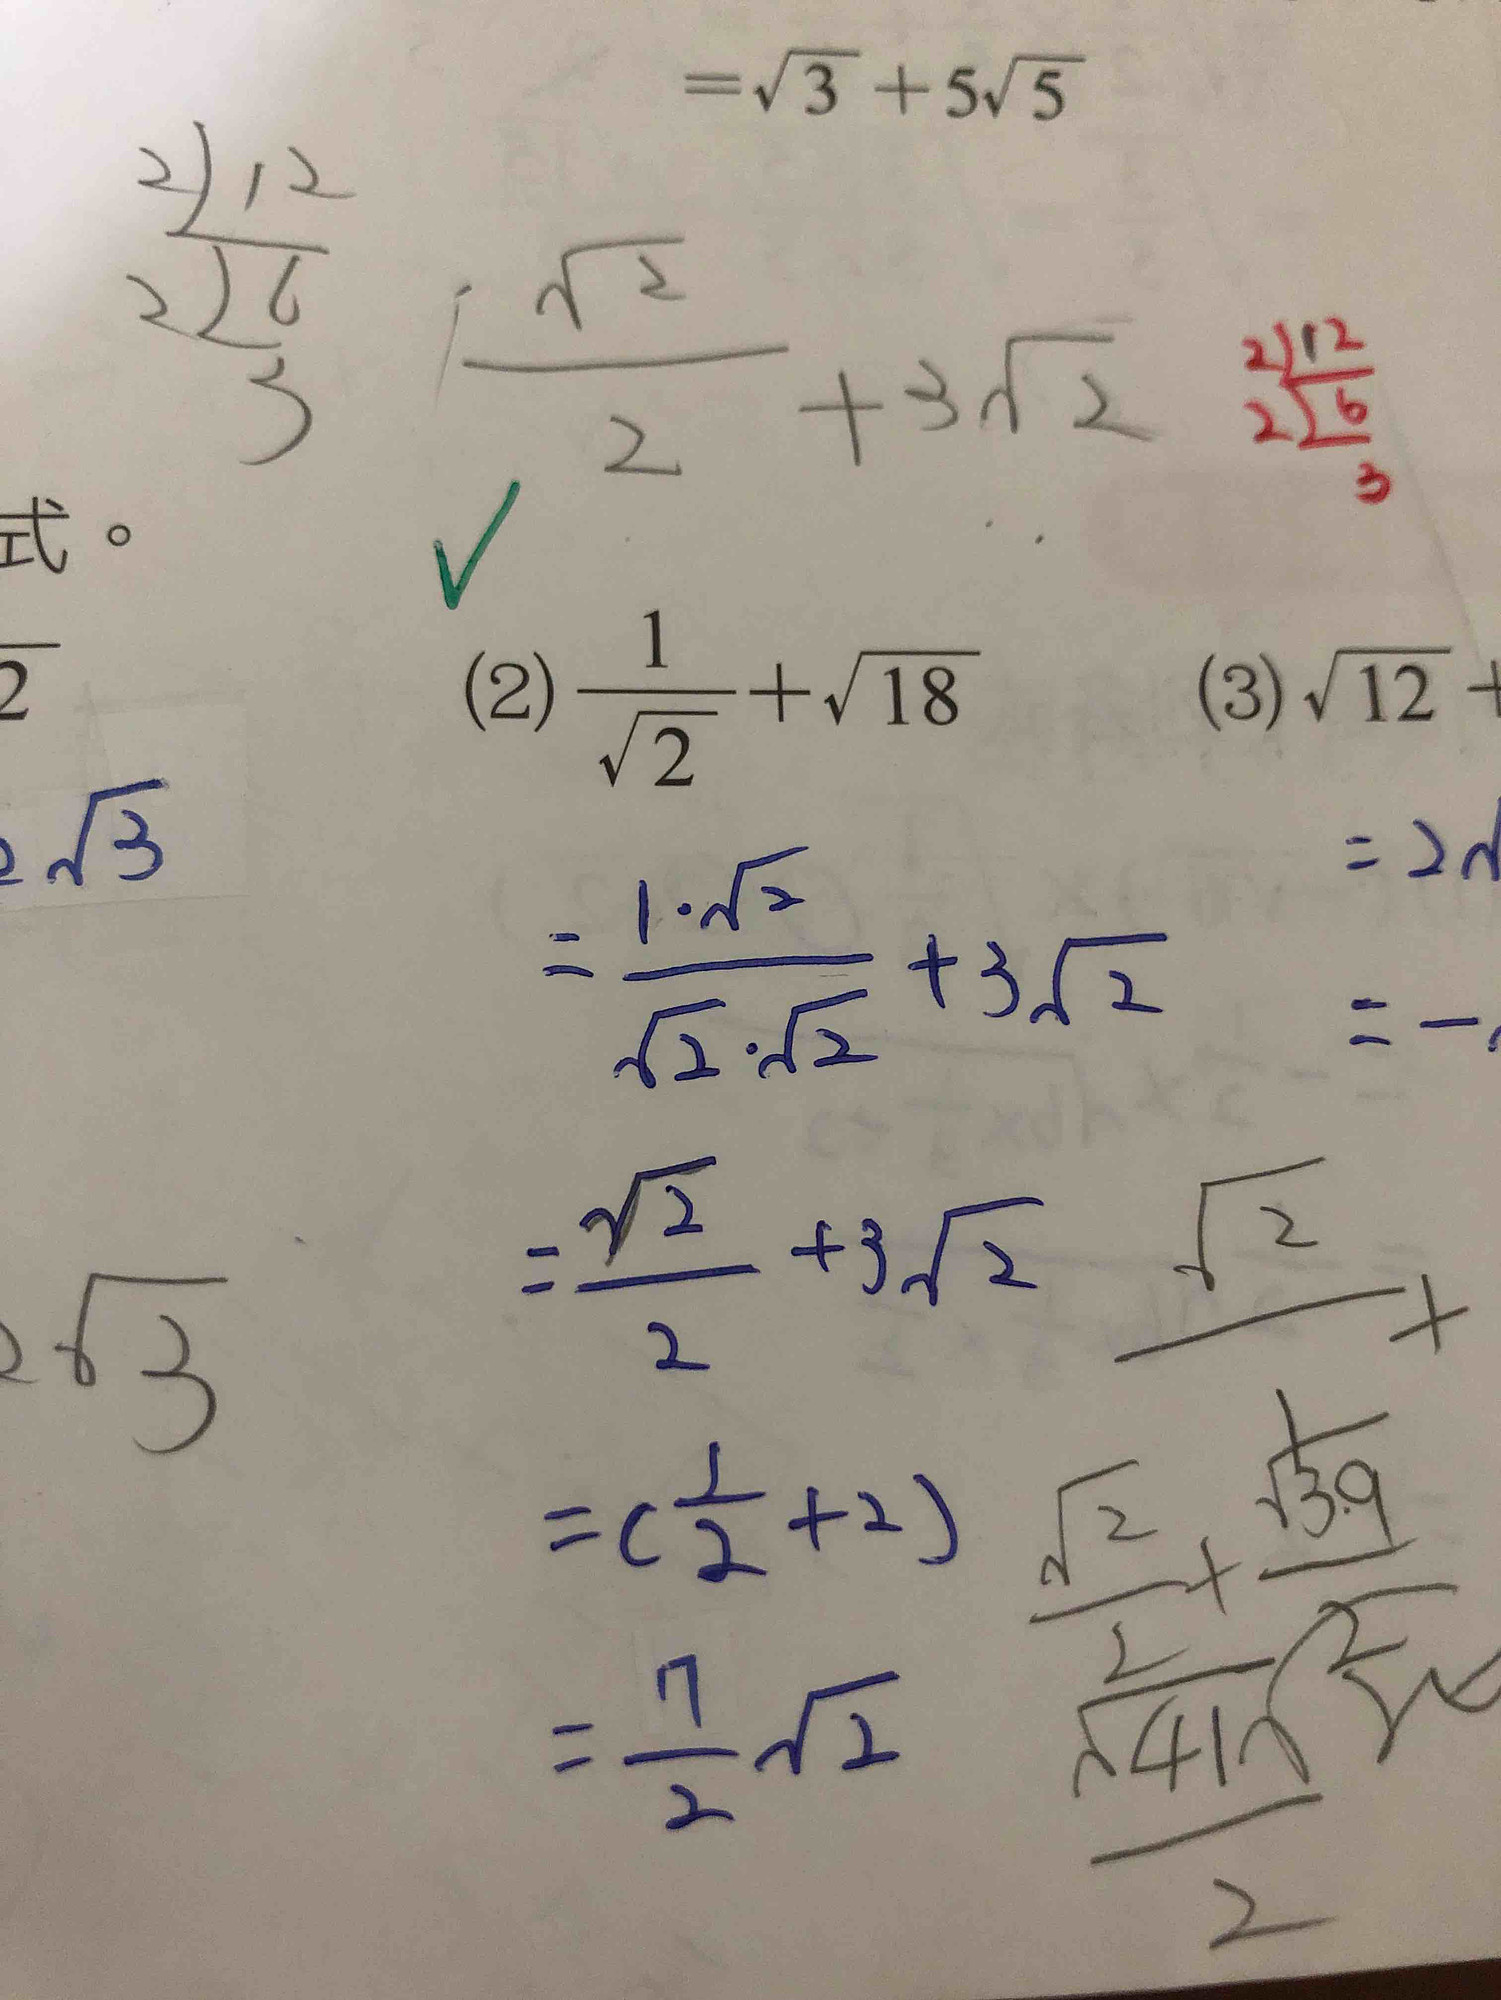 =√3 + 5√5
2)12
2)6
3
√2/2 + 3√2
2)12
2)6
3
式。
2
(2) 1/√2 + √18
(3) √12 +
2√3
= 1·√2/√2·√2 + 3√2
= 2√
= -
= √2/2 + 3√2
√2 +
2√3
= (1/2 + 2)
√2/2 +
= 7/2 √2
2